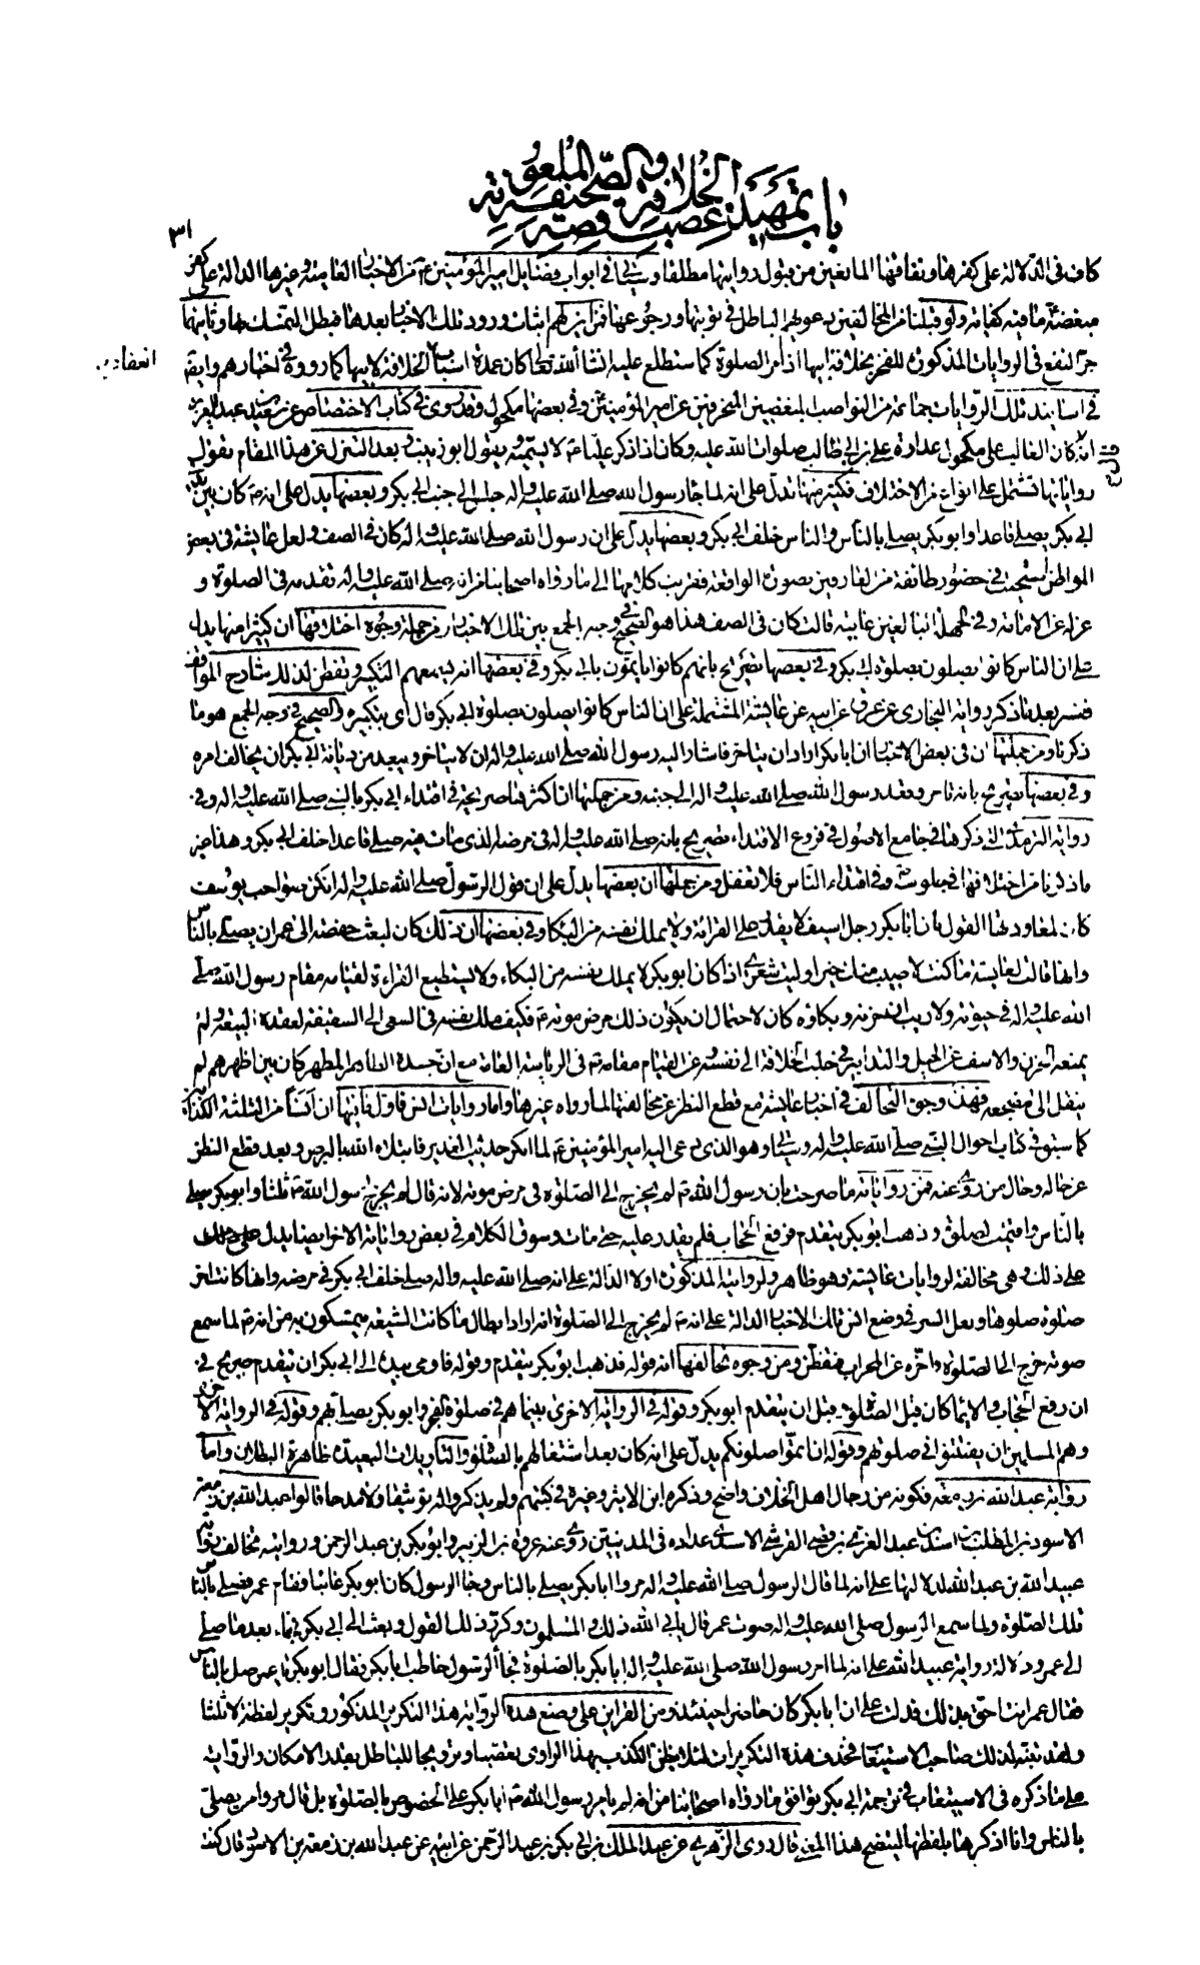 باب تمهيد غصب الخلافة وقصة الصحيفة الملعونة
٣١
كاف في الدلالة على كفرها ونفاقها المانعين من قبول روايتها مطلقا وسيأتي في ابواب فضايل امير المؤمنين ع من الاخبار العامية وغيرها الدالة على كفر
مبغضه ع ما فيه كفاية ولو قبلنا من المخالفين دعويهم الباطل في توبتها ورجوعها فمن اين لهم اثبات ورود تلك الاخبار بعدها فبطل التمسك بها وثانيهما
جر النفع في الروايات المذكورة للفخر بخلافة ابيها اذ امر الصلوة كما ستطلع عليه انشاء الله تعالى كان عمدة اسباب الخلافة لابيها كما رووه في اخبارهم وايضا
انعقاد
في اسانيد تلك الروايات جماعة من النواصب المبغضين المنحرفين عن امير المؤمنين وفي بعضها مكحول وقد روى في كتاب الاختصاص عن سعيد بن عبد العزيز
انه كان الغالب على مكحول عداوة علي بن ابي طالب صلوات الله عليه وكان اذا ذكر عليا ع لا يسميه ويقول ابو زينب وبعد التنزل عن هذا المقام نقول
رواياتها تشتمل على انواع من الاختلاف فكثير منها تدل على انه لما جاء رسول الله صلى الله عليه واله جلس الى جنب ابي بكر وبعضها يدل على انه ع كان بين يدي
ابي بكر يصلي قاعدا وابو بكر يصلي بالناس والناس خلف ابي بكر وبعضها يدل على ان رسول الله صلى الله عليه واله كان في الصف ولعل عائشة في بعض
المواطن استحيت في حضور طائفة من العارفين بصورة الواقعة فقربت كلامها الى ما رواه اصحابنا من انه صلى الله عليه واله تقدم في الصلوة و
عزله عن الامامة وفي الجهلة البالغين غايته قالت كان في الصف هذا هو الصحيح في وجه الجمع بين تلك الاخبار ومن جملة وجوه اختلافها ان كثيرا منها يدل
على ان الناس كانوا يصلون بصلوة ابي بكر وفي بعضها تصريح بانهم كانوا ياتمون بابي بكر وفي بعضها انه يسمعهم التكبير وتفطن لذلك شارح المواقف
ففسر بعد ما ذكر رواية البخاري عن عروة عن ابيه عن عائشة المشتملة على ان الناس كانوا يصلون بصلوة ابي بكر قال اي بتكبيره والصحيح في وجه الجمع هو ما
ذكرنا ومن جملتها ان في بعض الاخبار ان ابا بكر اراد ان يتاخر فاشار اليه رسول الله صلى الله عليه واله ان لا يتاخر ويبعد من ديانة ابي بكر ان يخالف امره
وفي بعضها تصريح بانه تاخر وقعد رسول الله صلى الله عليه واله الى جنبه ومن جملتها ان اكثرها صريحة في اقتداء ابي بكر بالنبي صلى الله عليه واله وفي
رواية الترمذي التي ذكرها في جامع الاصول في فروع الاقتداء تصريح بانه صلى الله عليه واله في مرضه الذي مات فيه صلى قاعدا خلف ابي بكر وهذا غير
ما ذكرنا من اختلافها في جلوسه ع وفي اقتداء الناس فلا تغفل ومن جملتها ان بعضها يدل على ان قول الرسول صلى الله عليه واله انكن صواحب يوسف
كان لمعاودتها القول بان ابا بكر رجل اسيف لا يقدر على القرائة ولا يملك نفسه من البكاء وفي بعضها ان ذلك كان لبعث حفصة الى عمر ان يصلي بالناس
وانها قالت لعايشة ما كنت لاصيب منك خيرا وليت شعري اذا كان ابو بكر لا يملك نفسه من البكاء ولا يستطيع القراءة لقيامه مقام رسول الله صلى
الله عليه واله في حيوته ولا ريب ان حزنه وبكاؤه كان لاحتمال ان يكون ذلك مرض موته ع فكيف ملك نفسه في السعي الى السقيفة لعقد البيعة ولم
يمنعه الحزن والاسف عن الحيل والتدابير في جلب الخلافة الى نفسه وعن القيام مقامه ع في الرياسة العامة مع ان جسده الطاهر المطهر كان بين اظهرهم لم
ينقل الى مضجعه فهذه وجوه التخالف في اخبار عائشة مع قطع النظر عن مخالفتها لما رواه غيرها واما روايات انس فاول ما فيها ان انسا من الثلثة الكذابين
كما سبق في كتاب احوال النبي صلى الله عليه واله وسيأتي وهو الذي دعى اليه امير المؤمنين ع لما انكر حديث الغدير فابتلاه الله بالبرص وبعد قطع النظر
عن حاله وحال من روى عنه فمن رواياته ما صرحت بان رسول الله ص لم يخرج الى الصلوة في مرض موته لانه قال لم يخرج رسول الله ص ثلثا وابو بكر يصلي
بالناس واقيمت الصلوة وذهب ابو بكر يتقدم فرفع الحجاب فلم يقدر عليه حتى مات وسوق الكلام في بعض رواياته الاخر ايضا يدل
على ذلك وهي مخالفة لروايات عائشة وهو ظاهر ولروايته المذكورة اولا الدالة على انه صلى الله عليه واله صلى خلف ابي بكر في مرضه وانها كانت اخر
صلوة صلوها ولعل السر في وضع انس تلك الاخبار الدالة على انه ع لم يخرج الى الصلوة انه اراد ابطال ما كانت الشيعة يتمسكون به من انه ع لما سمع
صوته خرج الى الصلوة واخره عن المحراب فتفطن ومن وجوه تخالفها انه قوله فذهب ابو بكر يتقدم وقوله فاومى بيده الى ابي بكر ان يتقدم صريح في
ان رفع الحجاب والايماء كان قبل الصلوة قبل ان يتقدم ابو بكر وقوله في الرواية الاخرى بينما هم في صلوة الفجر وابو بكر يصلي بهم وقوله في الرواية الاخرى
وهم المسلمون ان يفتتنوا في صلوتهم وقوله ان اتموا صلوتكم يدل على انه كان بعد اشتغالهم بالصلوة والتاويلات البعيدة ظاهرة البطلان واما
رواية عبد الله بن زمعة فكونه من رجال اهل الخلاف واضح وذكره ابن الاثير وغيره في كتبهم ولم يذكروا له توثيقا ولا مدحا قالوا عبد الله بن زمعة بن
الاسود بن المطلب بن اسد بن عبد العزى بن قصي القرشي الاسدي عداده في المدنيين روى عنه عروة بن الزبير وابو بكر بن عبد الرحمن وروايته مخالفة لرواية
عبيد الله بن عبد الله لدلالتها على انه لما قال الرسول صلى الله عليه واله مروا ابا بكر يصلي بالناس وجاء الرسول كان ابو بكر غائبا وقام عمر فصلى بالناس
تلك الصلوة ولما سمع الرسول صلى الله عليه واله صوت عمر قال يابى الله ذلك والمسلمون وكرر ذلك القول وبعث الى ابي بكر فجاء بعد ما صلى
عمر ودلالة رواية عبيد الله على انه لما امر رسول الله صلى الله عليه واله ابا بكر بالصلوة فجاء الرسول خاطب ابا بكر فقال ابو بكر يا عمر صل بالناس
فقال عمر انت احق بذلك فدلت على ان ابا بكر كان حاضرا حينئذ ومن القراين على وضع هذه الرواية هذا التكرير المذكور وتكرير لفظة لا ثلثا
ولقد تنبه لذلك صاحب الاستيعاب فحذف هذه التكريرات لئلا يظن الكذب بهذا الراوي تعصبا وترويجا للباطل بقدر الامكان والرواية
على ما ذكره في الاستيعاب في ترجمة ابي بكر توافق ما رواه اصحابنا من انه لم يامر رسول الله ص ابا بكر على الخصوص بالصلوة بل قال مروا من يصلي
بالناس وانا اذكرها بلفظها ليتضح هذا المعنى قال روى الزهري عن عبد الملك بن ابي بكر بن عبد الرحمن عن ابيه عن عبد الله بن زمعة بن الاسود قال كنت